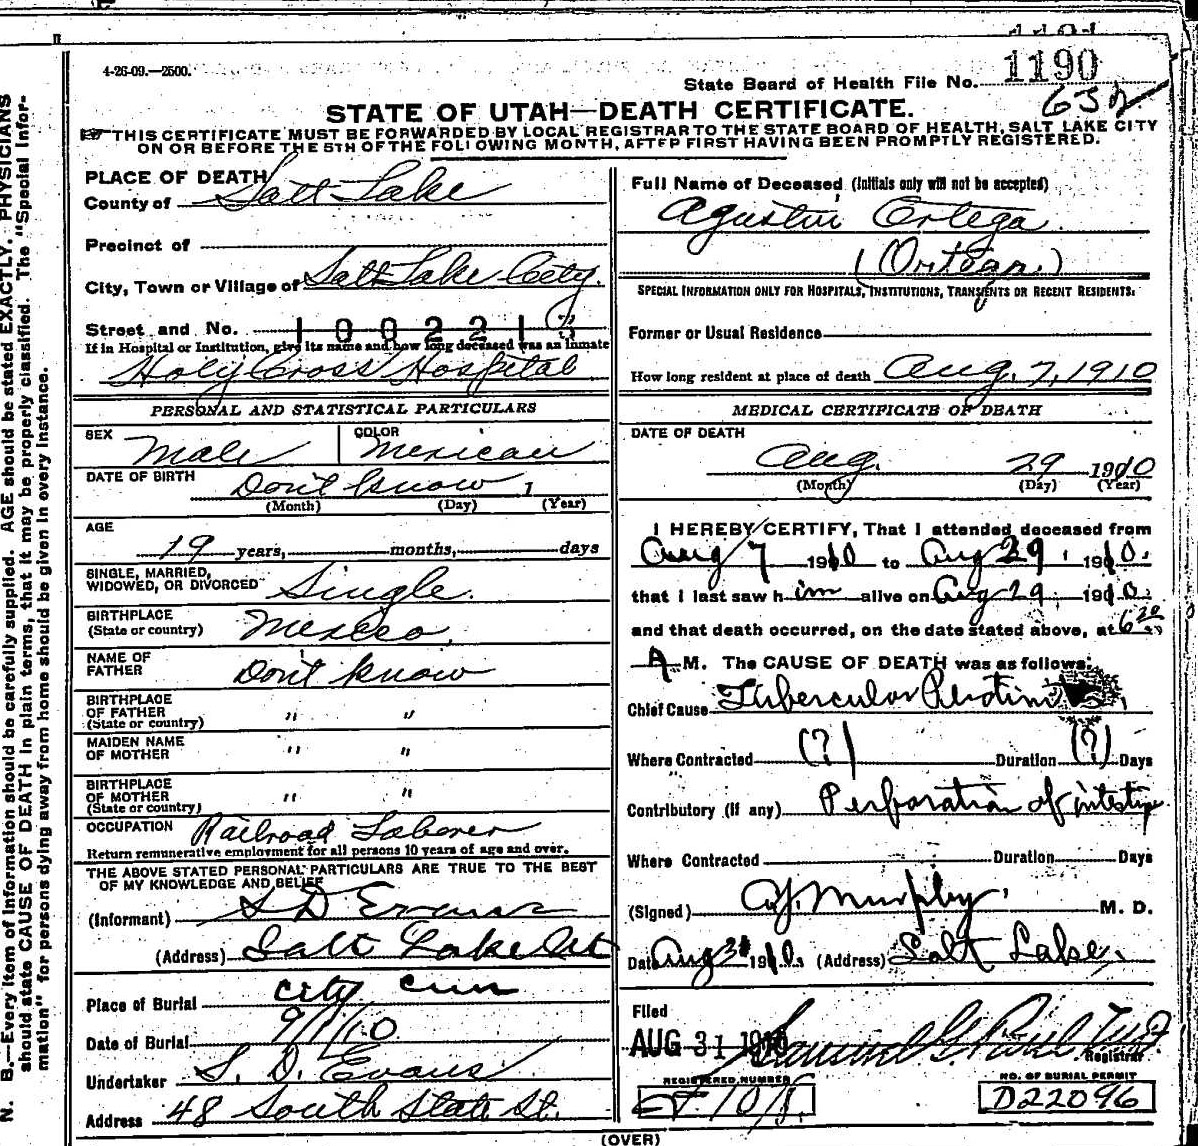 4-26-09.—2500.
State Board of Health File No. 1190
632
STATE OF UTAH—DEATH CERTIFICATE.
THIS CERTIFICATE MUST BE FORWARDED BY LOCAL REGISTRAR TO THE STATE BOARD OF HEALTH, SALT LAKE CITY
ON OR BEFORE THE 5TH OF THE FOLLOWING MONTH, AFTER FIRST HAVING BEEN PROMPTLY REGISTERED.
N. B.—Every item of information should be carefully supplied. AGE should be stated EXACTLY. PHYSICIANS
should state CAUSE OF DEATH in plain terms, that it may be properly classified. The "Special Infor-
mation" for persons dying away from home should be given in every instance.
PLACE OF DEATH
County of Salt Lake
Precinct of
City, Town or Village of Salt Lake City.
Street and No. 100221
If in Hospital or Institution, give its name and how long deceased was an inmate
Holy Cross Hospital
PERSONAL AND STATISTICAL PARTICULARS
SEX Male COLOR Mexican
DATE OF BIRTH Don't know 1
(Month) (Day) (Year)
AGE
19 years, months, days
SINGLE, MARRIED,
WIDOWED, OR DIVORCED Single.
BIRTHPLACE
(State or country) Mexico.
NAME OF
FATHER Don't know
BIRTHPLACE
OF FATHER
(State or country) " "
MAIDEN NAME
OF MOTHER " "
BIRTHPLACE
OF MOTHER
(State or country) " "
OCCUPATION Railroad Laborer
Return remunerative employment for all persons 10 years of age and over.
THE ABOVE STATED PERSONAL PARTICULARS ARE TRUE TO THE BEST
OF MY KNOWLEDGE AND BELIEF
(Informant) S D Evans
(Address) Salt Lake
Place of Burial City Cem
Date of Burial 9/1/10
Undertaker S. D. Evans
Address 48 South State St.
Full Name of Deceased (Initials only will not be accepted)
Agustin Ortega
(Ortegan.)
SPECIAL INFORMATION ONLY FOR HOSPITALS, INSTITUTIONS, TRANSIENTS OR RECENT RESIDENTS:
Former or Usual Residence
How long resident at place of death Aug. 7, 1910
MEDICAL CERTIFICATE OF DEATH
DATE OF DEATH
Aug. 29 1910
(Month) (Day) (Year)
I HEREBY CERTIFY, That I attended deceased from
Aug 7 1910 to Aug 29, 1910.
that I last saw him alive on Aug 29, 1910.
and that death occurred, on the date stated above, at 6 20
A M. The CAUSE OF DEATH was as follows:
Chief Cause Tubercular
Where Contracted (?) Duration (?) Days
Contributory (if any) Perforation of intestine
Where Contracted Duration Days
(Signed) Murphy M. D.
Date Aug 1910. (Address) Salt Lake.
Filed
AUG 31 1910
Registrar
REGISTERED NUMBER
NO. OF BURIAL PERMIT
D22096
(OVER)